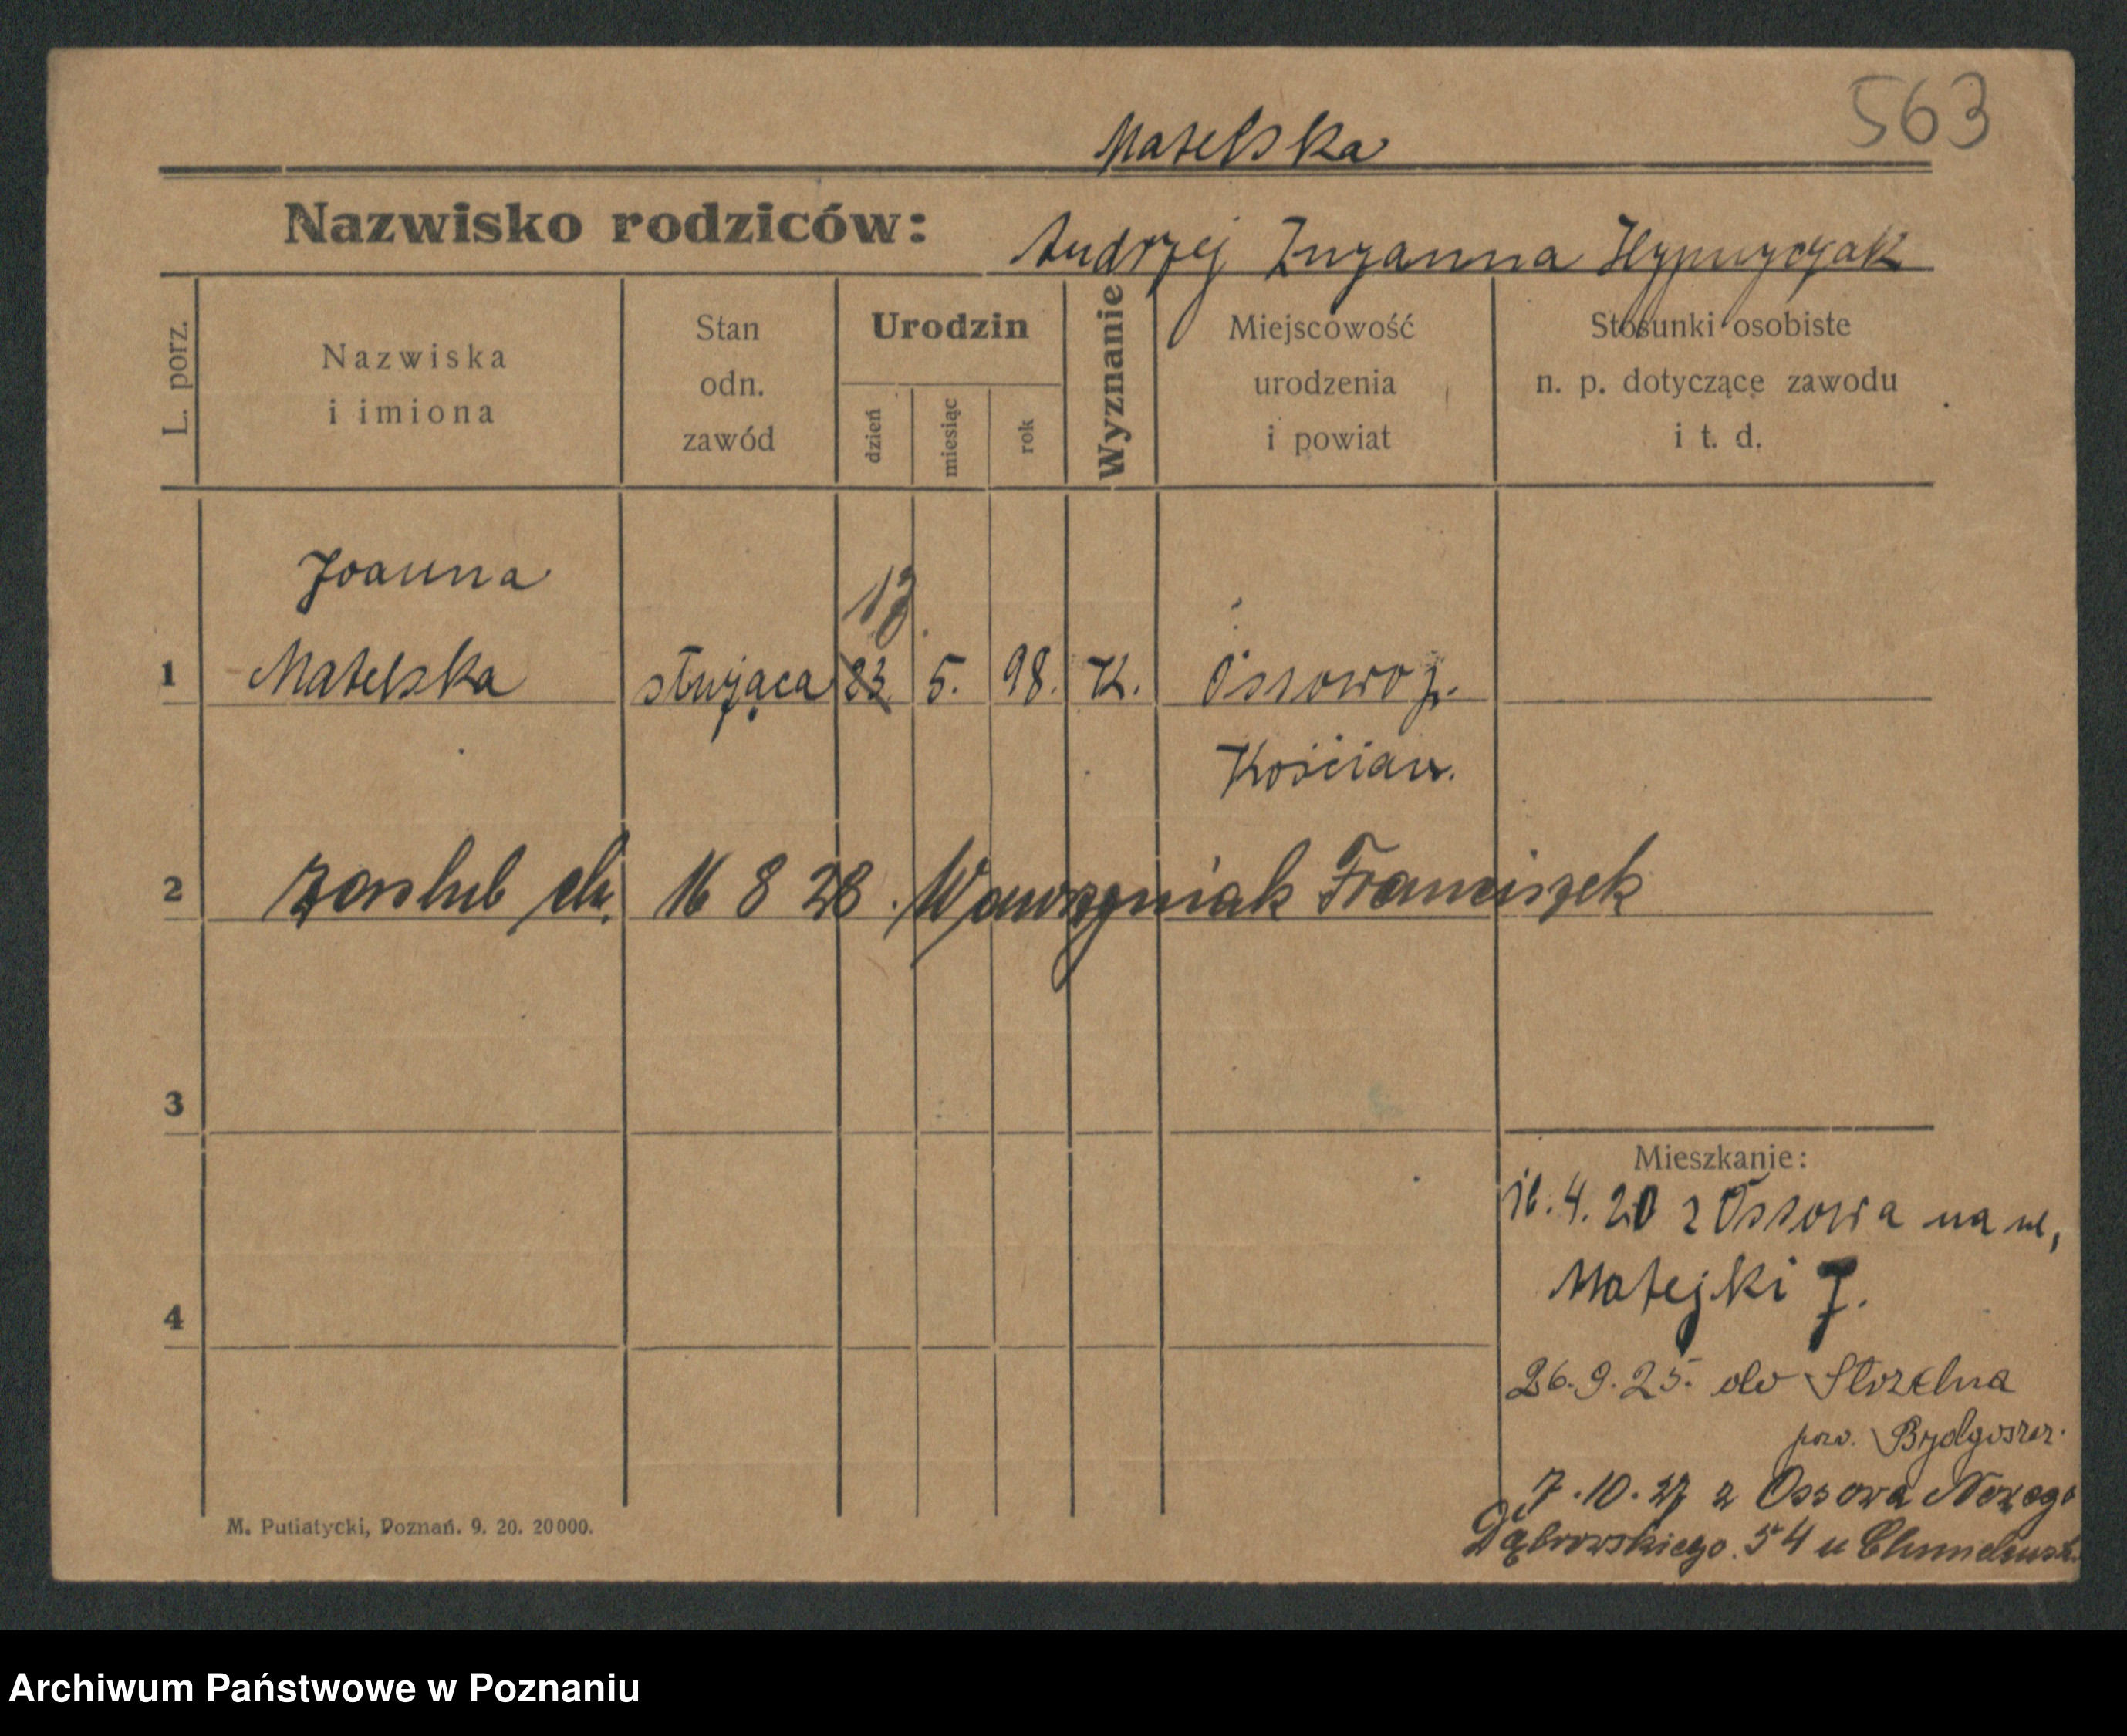 563
Matelska
Nazwisko rodziców:
Andrzej Zuzanna
L. porz.
Nazwiska
i imiona
Stan
odn.
zawód
Urodzin
dzień
miesiąc
rok
Wyznanie
Miejscowość
urodzenia
i powiat
Stosunki osobiste
n. p. dotyczące zawodu
i t. d.
Joanna
1 Matelska służąca 23. 5. 98. K. Ossowo p.
Kościan.
2 zaślub dn. 16 8 28. Wawrzyniak Franciszek
3
4
Mieszkanie:
16.4.20 z Ossowa na ul,
Matejki 7.
26.9.25. do Strzelna
pow. Bydgoszcz.
7.10.27 z Ossowa Nowego
Dąbrowskiego 54 u
M. Putiatycki, Poznań. 9. 20. 20000.
Archiwum Państwowe w Poznaniu